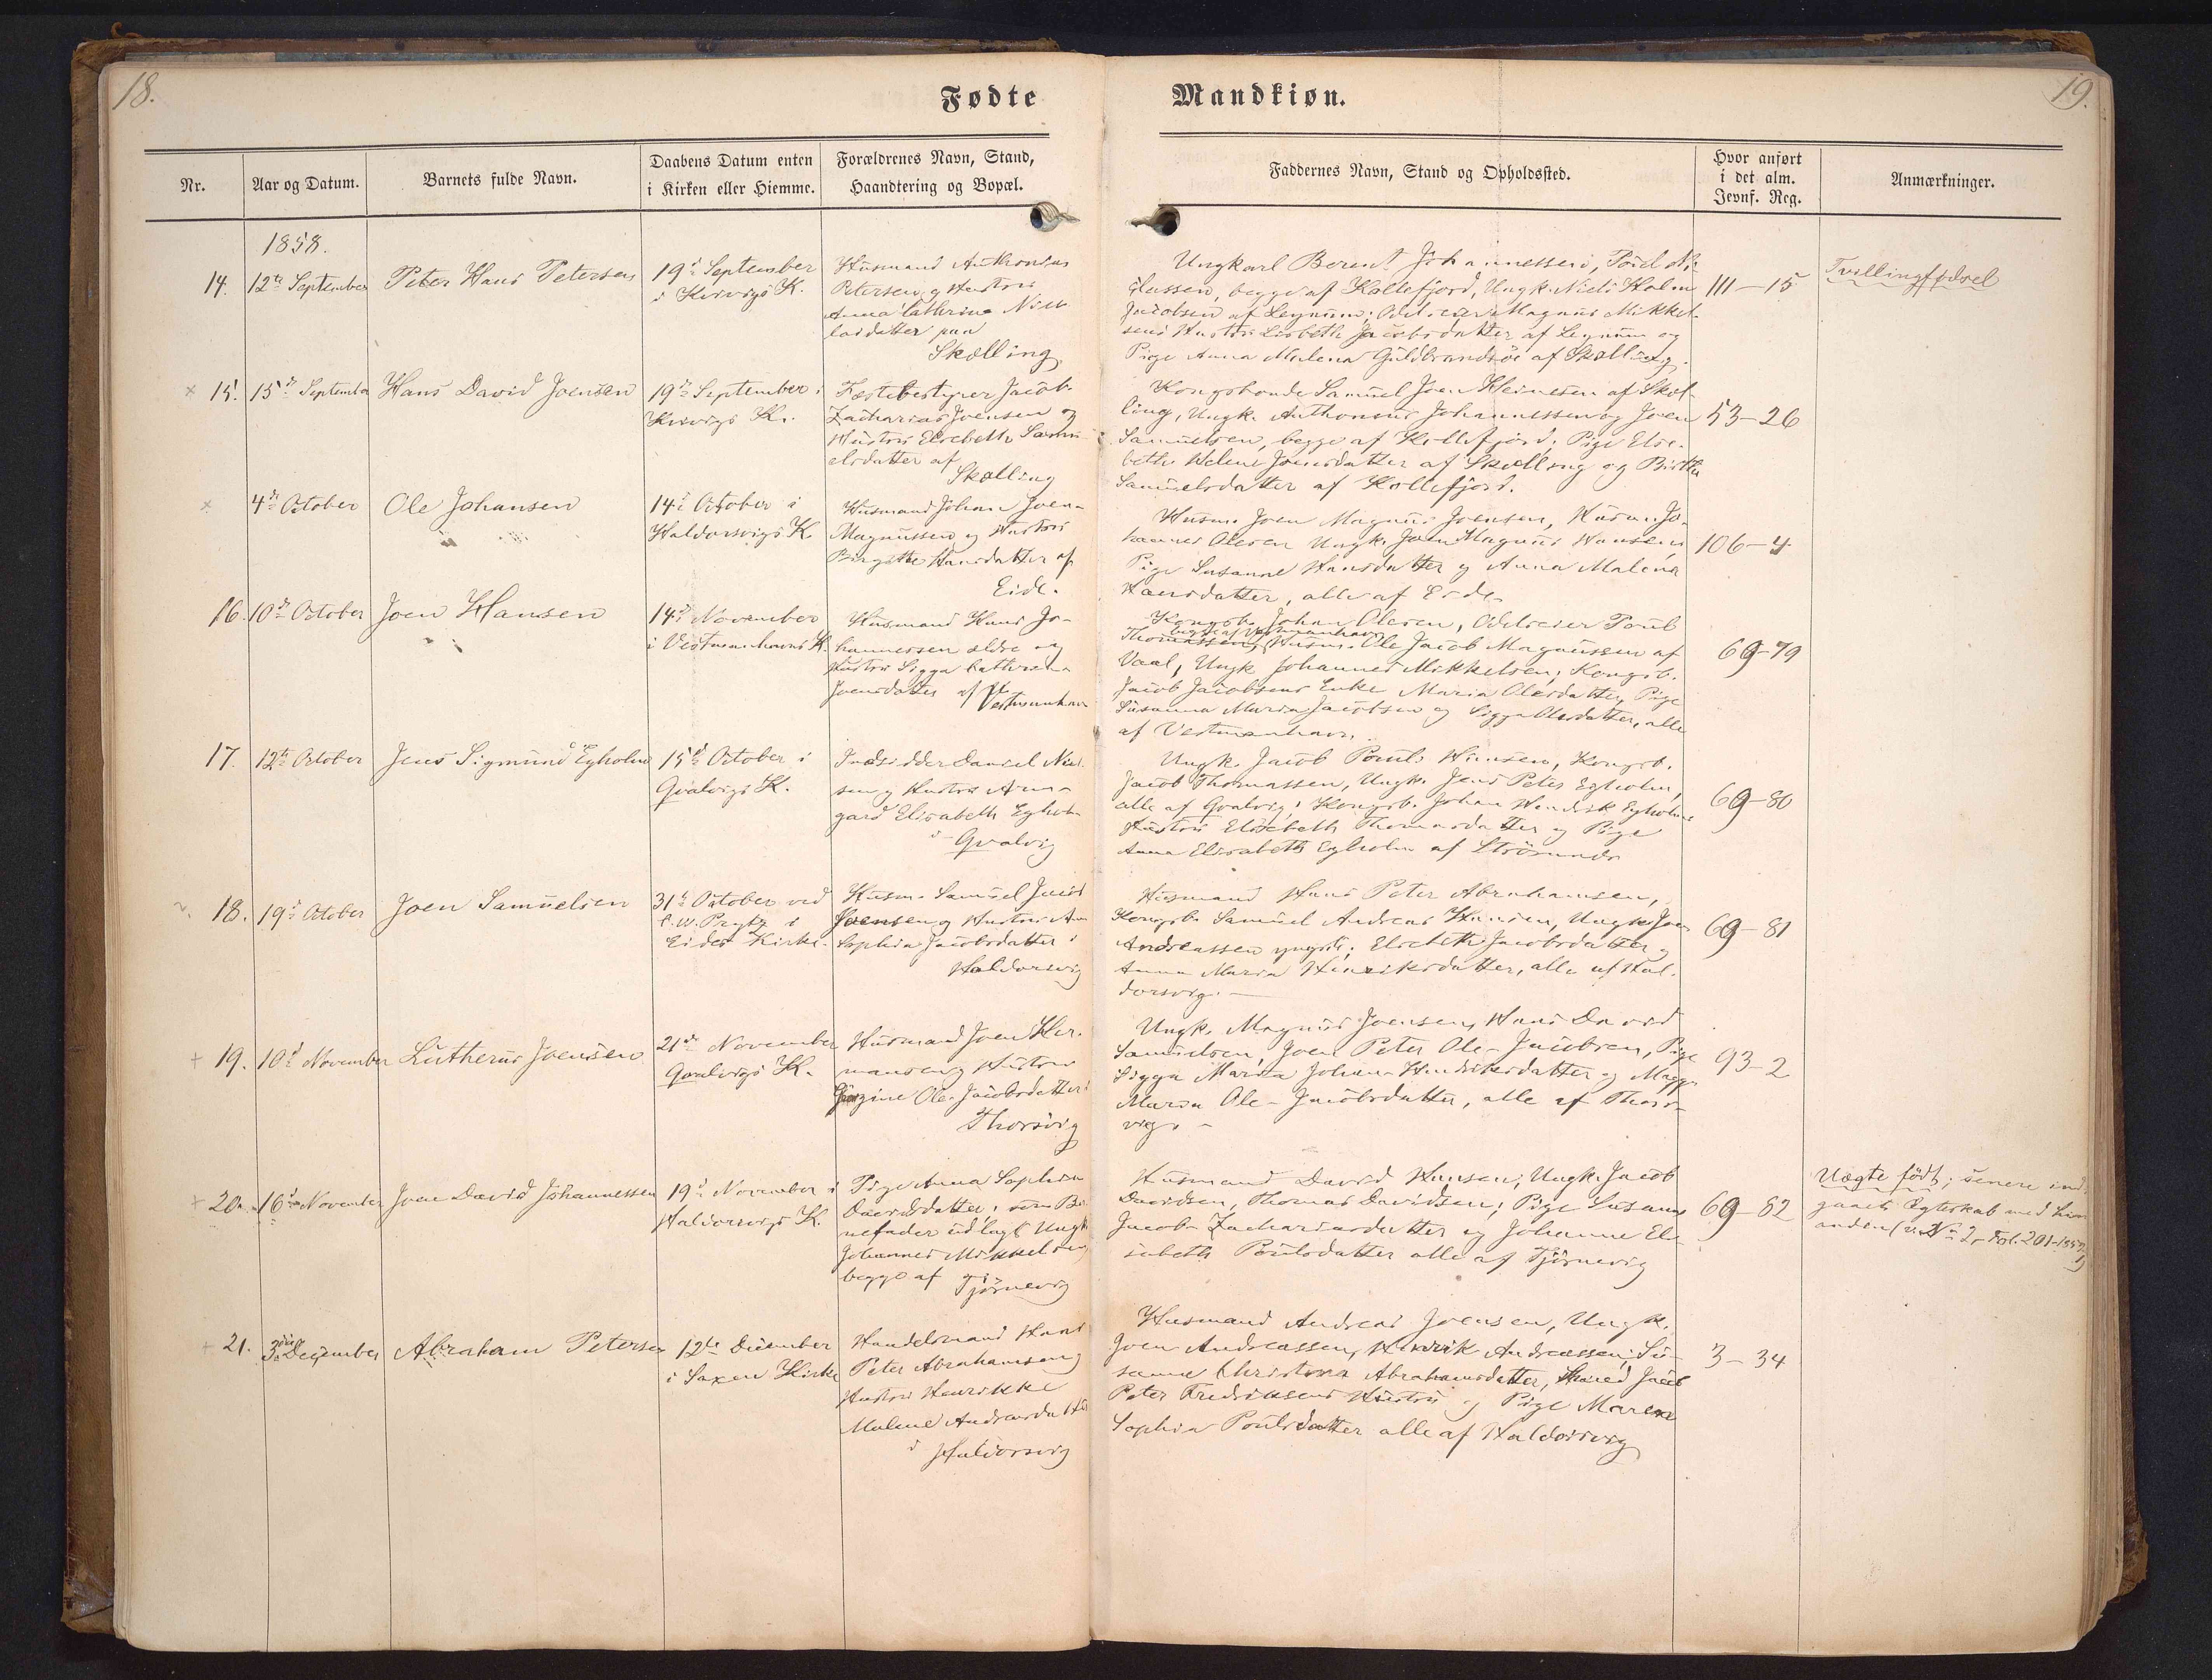 18.
Fødte
Nr.
Aar og Datum.
Barnets fulde Navn.
Daabens Datum enten
i Kirken eller Hiemme.
Forældrenes Navn, Stand,
Haandtering og Bopæl.
1858.
14.
12te September
Peter Hans Petersen
19de September
i Kvivigs K.
Husmand Anthonius
Petersen og Hustru
Anna Cathrine Nick
lasdatter paa
Skælling
15.
15de September
Hans David Joensen
19de September i
Kvivigs K.
Fæstebestyrer Jacob
Zacharias Joensen og
Hustru Elsebeth Samu-
elsdatter af
Skælling
4de October
Ole Johansen
14de October i
Haldorsvigs K.
Husmand Johan Joen-
Magnussen og Hustru
Birgithe Hansdatter af
Eide.
16.
10de October
Joen Hansen
14de November
i Vestmanhavns K.
Husmand Hans Jo-
hannessen ældre og
Hustru Sigga Cathrina
Joensdatter af
Vestmanhavn
17.
12te October
Jens Sigmund Egholm
15de October i
Qvalvigs K.
Indsidder Daniel Niel-
sen og Hustru Arm-
gard Elisabeth Egholm
i Qvalvig
18.
19de October
Joen Samuelsen
31te October ved
C. W. Prytz i
Eides Kirke.
Husm. Samuel Jacob
Joensen og Hustru Ann
Sophia Jacobsdatter i
Haldorsvig
19.
10de November
Lutherus Joensen
21de November
Qvalvigs K.
Husmand Joen Her-
mansen og Hustru
Jørgine Ole-Jacobsdatter i
Thorsvig
20.
16de November
Joen David Johannessen
19de November i
Haldorsvigs K.
Pige Anna Sophia
Davidsdatter; som Bar-
nefader udlagt Ungk.
Johannes Mikkelsen,
begge af Tjørnevig
21.
3die December
Abraham Petersen
12te December
i Saxen Kirke
Handelsmand Hans
Peter Abrahamsen og
Hustru Henrikke
Malene Andreasdatter
i Haldorsvig
19.
Mandkiøn.
Faddernes Navn, Stand og Opholdssted.
Hvor anført
i det alm.
Jevnf. Reg.
Anmærkninger.
Ungkarl Berent Johannessen, Poul Ni-
claasen, begge af Kollefjord, Ungk. Niels Holm
Jacobsen af Leynum; Odelseier Magnus Mikkel-
sens Hustru Lisbeth Jacobsdatter af Leynum og
Pige Anna Malena Guldbrandsøe af Skælling.
111-15
Tvillingfødsel
Kongsbonde Samuel Joen Heinesen af Skæl-
ling, Ungk. Anthonius Johannessen og Joen
Samuelsen, begge af Kollefjord; Pige Else-
beth Helene Joensdatter af Skælling og Birthe
Samuelsdatter af Kollefjord.
53-26
Husm. Joen Magnus Joensen, Husm. Jo-
hannes Olesen Ungk. Joen Magnus Hansen,
Pige Susanne Hansdatter og Anna Malena
Hansdatter, alle af Eide.
106-4
Kongsb. Johan Olesen, Odelseier Poul
begge af Vestmanhavn
Thomassen, Husm. Ole Jacob Magnussen af
Vaal, Ungk. Johannes Mikkelsen; Kongsb.
Jacob Jacobsens Enke Maria Olesdatter, Pige
Susanna Maria Jacobsen og Sigga Olesdatter, alle
af Vestmanhavn.
69-79
Ungk. Jacob Pouli Hansen, Kongsb.
Jacob Thomassen, Ungk. Jens Peter Egholm,
alle af Qvalvig; Kongsb. Johan Hendrik Egholms
Hustru Elsebeth Thomasdatter og Pige
Anna Elisabeth Egholm af Strømnæs
69-80
Husmand Hans Peter Abrahamsen,
Kongsb. Samuel Andreas Hansen, Ungk. Joen
Andreassen yngste; Elsebeth Jacobsdatter og
Anna Maria Henriksdatter, alle af Hal-
dorsvig.
69-81
Ungk. Magnus Joensen, Hans David
Samuelsen, Joen Peter Ole-Jacobsen, Pige
Sigga Maria Johan-Hendriksdatter og Magga
Maria Ole-Jacobsdatter, alle af Thors-
vig.
93-2
Husmand David Hansen; Ungk. Jacob
Davidsen, Thomas Davidsen; Pige Susanne
Jacob-Zachariasdatter og Johanne El-
sebeth Poulsdatter alle af Tjørnevig
69-82
Uægte født; senere ind-
gaaet Ægteskab med hin-
anden
Husmand Andreas Joensen, Ungk.
Joen Andreassen, Henrik Andreassen; Su-
sanne Christina Abrahamsdatter, Jacob
Peter Fredriksens Hustru og Pige Maren
Sophia Poulsdatter alle af Haldorsvig
3-34